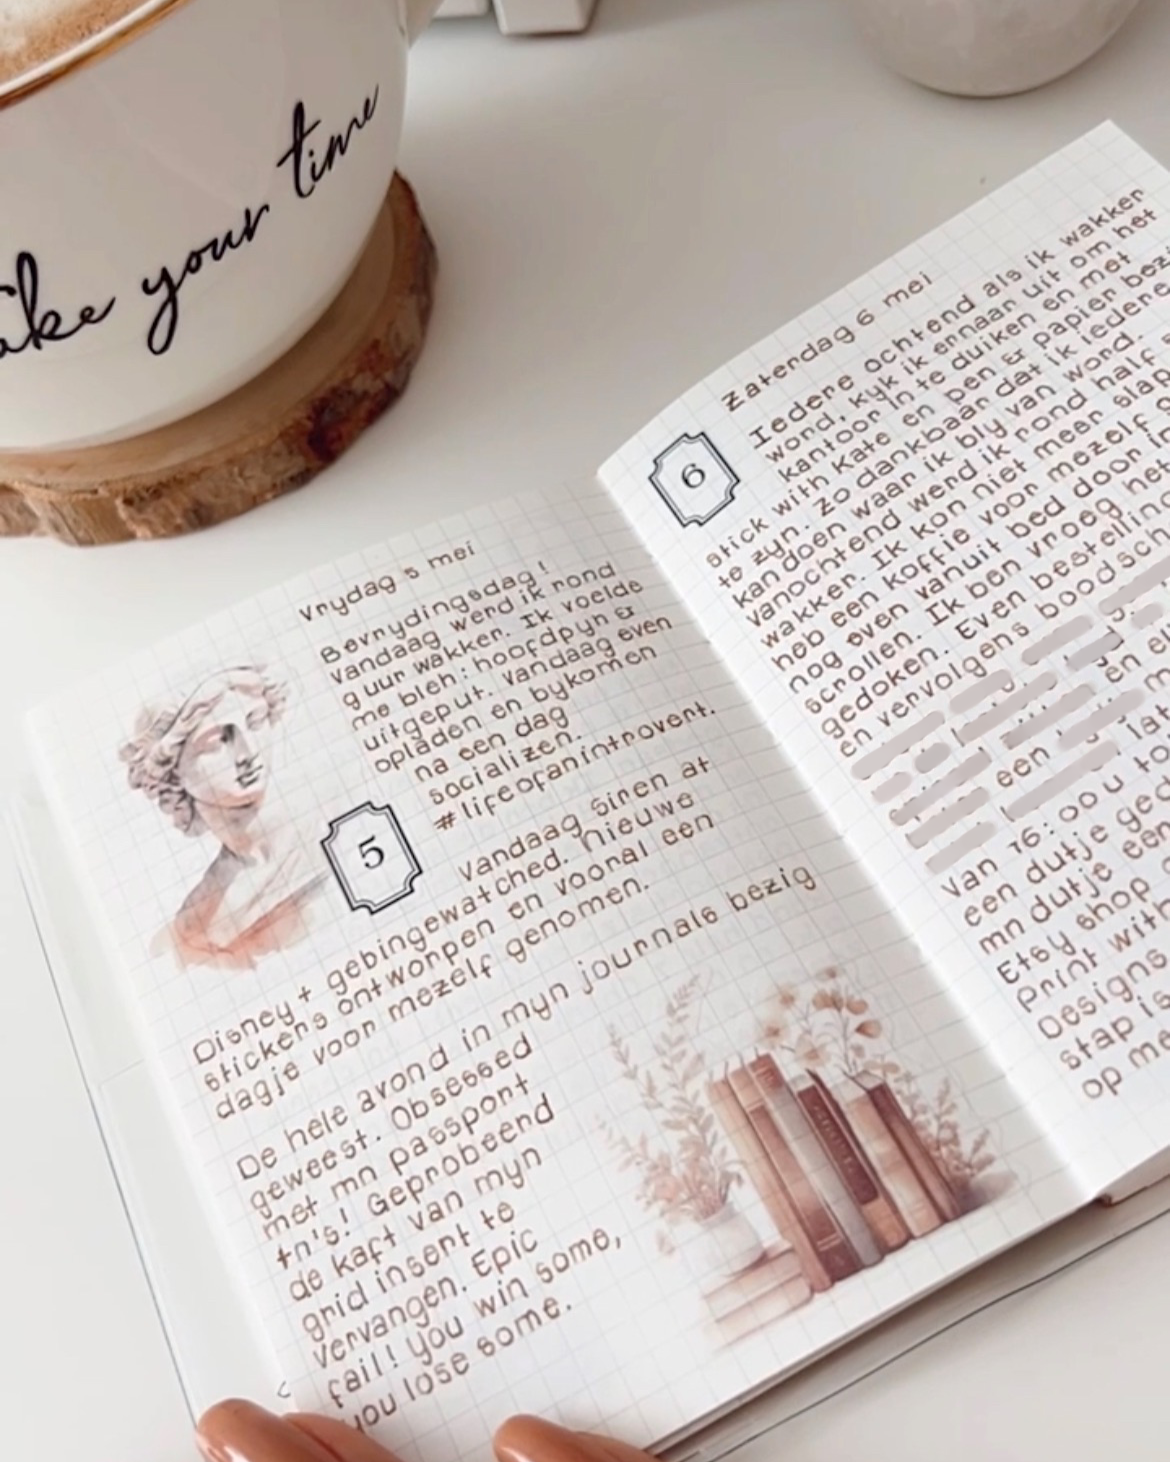 take your time
vrydag 5 mei
Bevrydingsdag!
vandaag werd ik rond
9 uur wakker. Ik voelde
me bleh: hoofdpyn &
uitgeput. vandaag even
opladen en bykomen
na een dag
socializen.
#lifeofanintrovert.
5
vandaag Siren at
Disney+ gebingewatched. Nieuwe
stickers ontworpen en vooral een
dagje voor mezelf genomen.
De hele avond in myn journals bezig
geweest. Obsessed
met mn passport
tn's! Geprobeerd
de kaft van myn
grid insert te
vervangen. Epic
fail! you win some,
you lose some.
zaterdag 6 mei
6
Iedere ochtend als ik wakker
word, kyk ik ernaar uit om het
kantoor in te duiken en met
pen & papier
stick with Kate en
te zyn. Zo dankbaar dat ik iedere
kan doen waar ik bly van word.
vanochtend werd ik rond half
wakker. Ik kon niet meer
heb een koffie voor mezelf
nog even vanuit bed door
scrollen. Ik ben vroeg het
gedoken. Even
en vervolgens
en
een
van 16:00 u
een dutje
mn dutje een
Etsy shop
print with
Designs
stap is
op